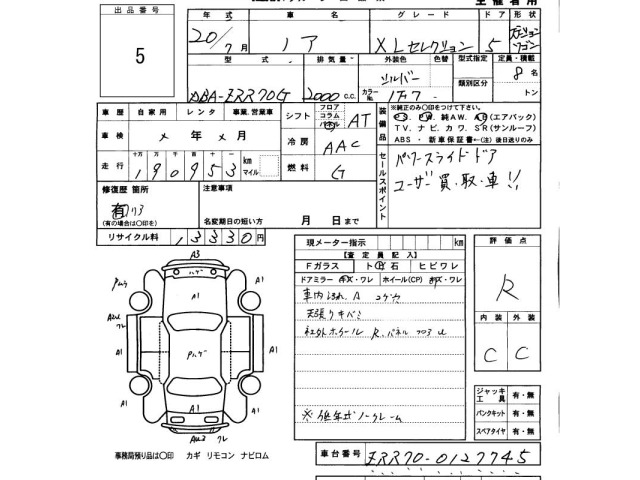 出品番号
5
年式
車名
グレード
ドア
形状
20/7月
ノア
XLセレクション
5
ステーションワゴン
型式
排気量
外装色
色替
型式指定
定員・積載
DBA-ZRR70G
2000 c.c.
シルバー
カラーNo.
1F7
類別区分
8名
トン
車歴
自家用
レンタ
事業、営業車
シフト
フロア
コラム
パネル
AT
装備品
※純正のみ○印をつけて下さい。
P.S. P.W. 純AW. AB(エアバック)
TV. ナビ. カワ. SR(サンルーフ)
ABS ・ 新車保証書←(注)後日送りのみ
車検
年
月
冷房
AAC
走行
十万
万
千
百
十
一
190953
km
マイル
燃料
G
セールスポイント
パワースライドドア
ユーザー買・取・車!!
修復歴
箇所
有
リア
(有の場合は○印を)
注意事項
名変期日の短い方
月
日まで
リサイクル料
13330円
現メーター指示
km
評価点
【査定員記入】
Fガラス
ト 石
ヒビワレ
ドアミラー
キズ・ワレ
ホイール(CP)
キズ・ワレ
R
車内
天張りキバミ
社外ホイール
R.パネル
内装
外装
C
C
※低年式ノークレーム
ジャッキ工具
有・無
パンクキット
有・無
スペアタイヤ
有・無
A3
ハゲ
A1
A1
A1
A1
A1
A1
A1
ワレ
事務局預り品は○印
カギ
リモコン
ナビロム
車台番号
ZRR70-0127745